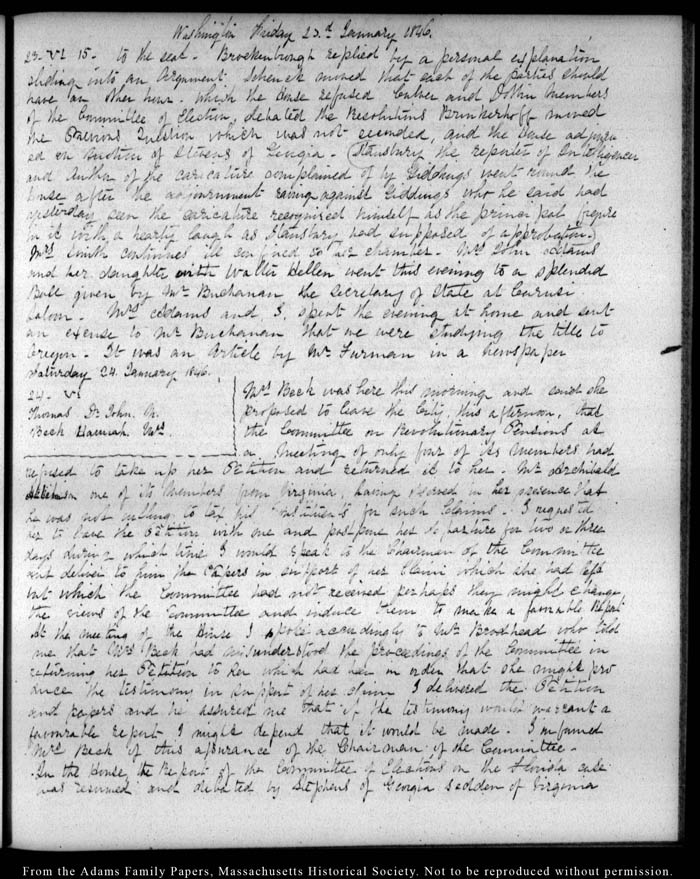 Washington Friday 23.d January 1846.
23 - VI. 15 - to the seat - Brockenbrough replied by a personal explanation
sliding into an Argument. Schenck moved that each of the parties should
have an other hour - which the House refused Culver and Dobbin members
of the Committee of Election, debated the Resolutions Brinkerhoff moved
the Previous Question which was not seconded, and the House adjourn
ed on motion of Stevens of Georgia - Stansbury the reporter of Intelligencer
and Author of the caricature complained of by Giddings went round the
house after the adjournment raving against Giddings who he said had
yesterday seen the caricature recognised himself as the principal figure
in it with a hearty laugh as Stansbury had supposed of approbation.
Mrs Smith continues ill confined to her chamber - Mrs John Adams
and her daughter with Walter Hellen went this evening to a splendid
Ball given by Mr Buchanan the Secretary of State at Carusi
saloon - Mrs Adams and I, spent the evening at home and sent
an excuse to Mr Buchanan that we were studying the title to
Oregon - It was an Article by Mr Furman in a newspaper
Saturday 24 January 1846.
24 - VI
Thomas Dr John M.
Beck Hannah Mrs.
Mrs Beck was here this morning and said she
proposed to leave the City, this afternoon, that
the Committee on Revolutionary Pensions at
a meeting of only four of its members had
refused to take up her Petition and returned it to her - Mr Archibald
Atkinson one of its Members from Virginia, having observed in her presence that
he was not willing to tax his Constituents for such Claims - I requested
her to leave the Petition with me and postpone her departure for two or three
days during which time I would speak to the Chairman of the Committee
and deliver to him the Papers in support of her Claim which she had left
but which the Committee had not received perhaps they might change
the views of the Committee and induce them to make a favorable Report
At the meeting of the House I spoke accordingly to Mr. Brodhead who told
me that Mrs Beck had misunderstood the proceedings of the Committee in
returning her Petition to her which had been in order that she might pro
duce the testimony in support of her claim I delivered the Petition
and papers and he assured me that if the testimony would warrant a
favourable report I might depend that it would be made - I informed
Mrs Beck of this assurance of the Chairman of the Committee -
In the House, the Report of the Committee of Elections on the Florida case
was resumed and debated by Stephens of Georgia Seddon of Virginia
From the Adams Family Papers, Massachusetts Historical Society. Not to be reproduced without permission.